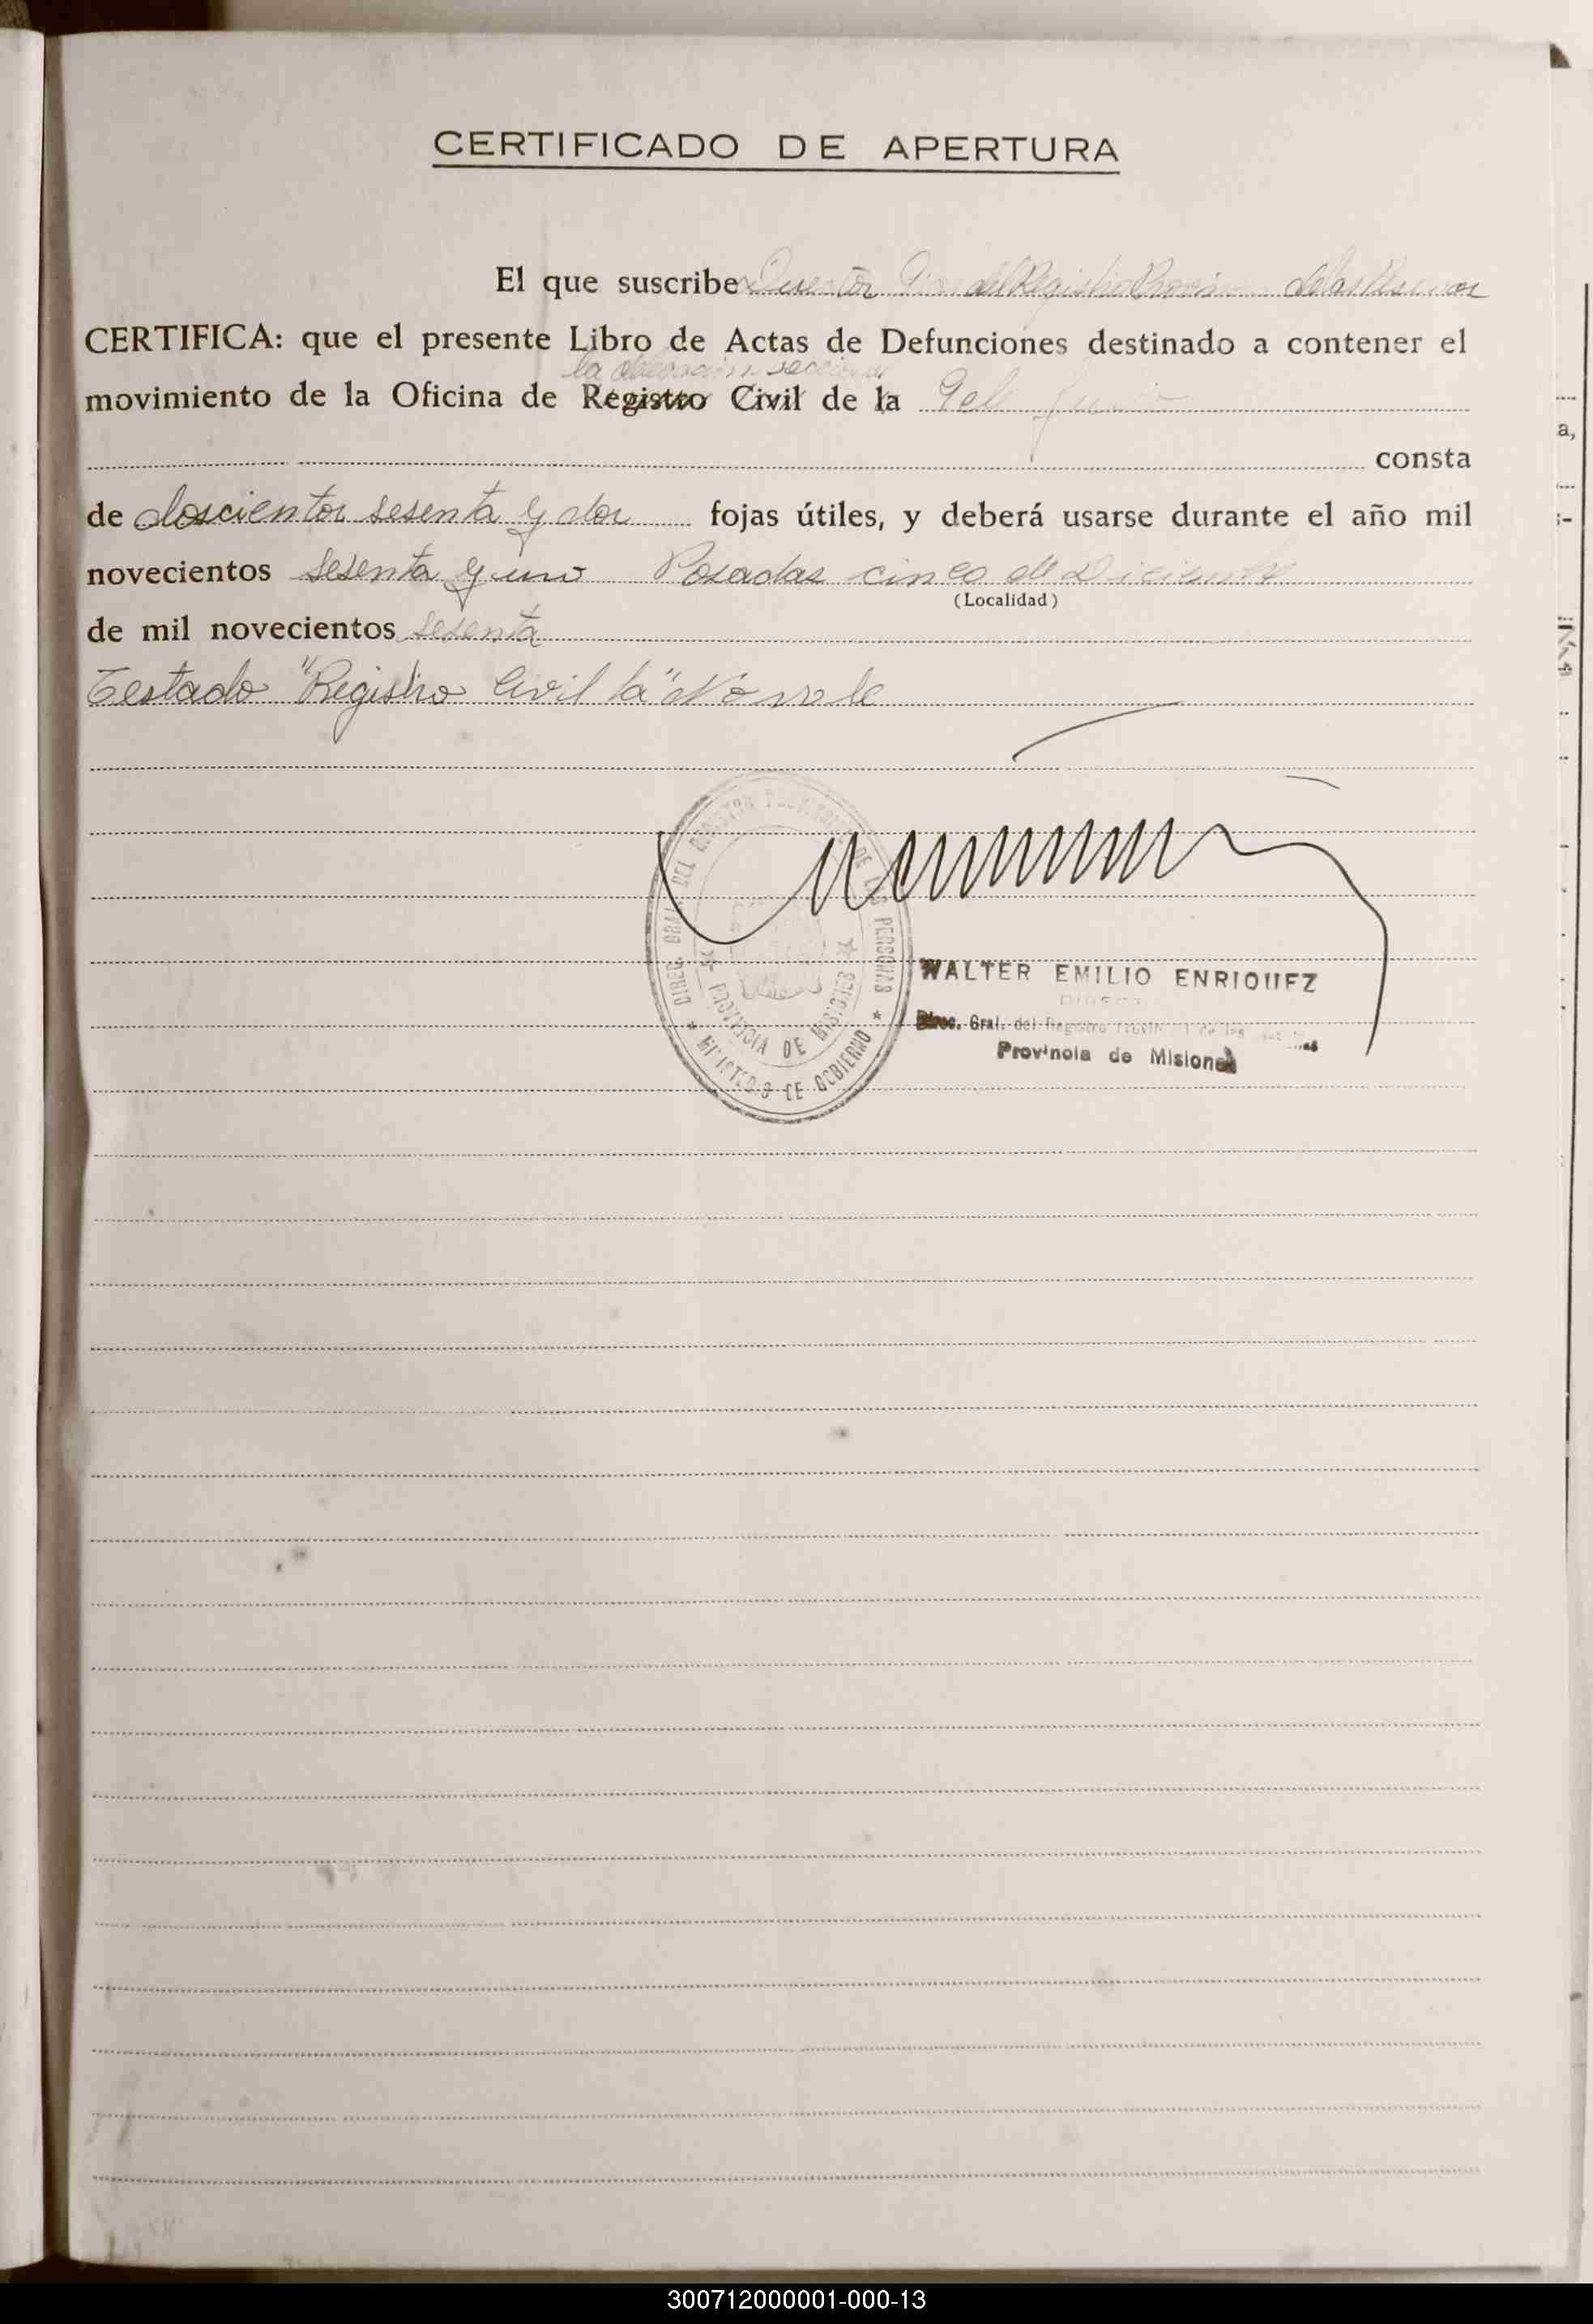 CERTIFICADO DE APERTURA
El que suscribe Director del Registro de las
CERTIFICA: que el presente Libro de Actas de Defunciones destinado a contener el
la seccional
movimiento de la Oficina de Registro Civil de la
consta
de doscientos sesenta y dos fojas útiles, y deberá usarse durante el año mil
novecientos sesenta y uno Posadas cinco de Diciembre
(Localidad)
de mil novecientos sesenta
Testado "Registro Civil la" No vale
DIREC. GRAL. DEL REGISTRO DE LAS PERSONAS
PROVINCIA DE MISIONES
MINISTERIO DE GOBIERNO
WALTER EMILIO ENRIQUEZ
Direc. Gral. del Registro de las
Provincia de Misiones
a,
300712000001-000-13